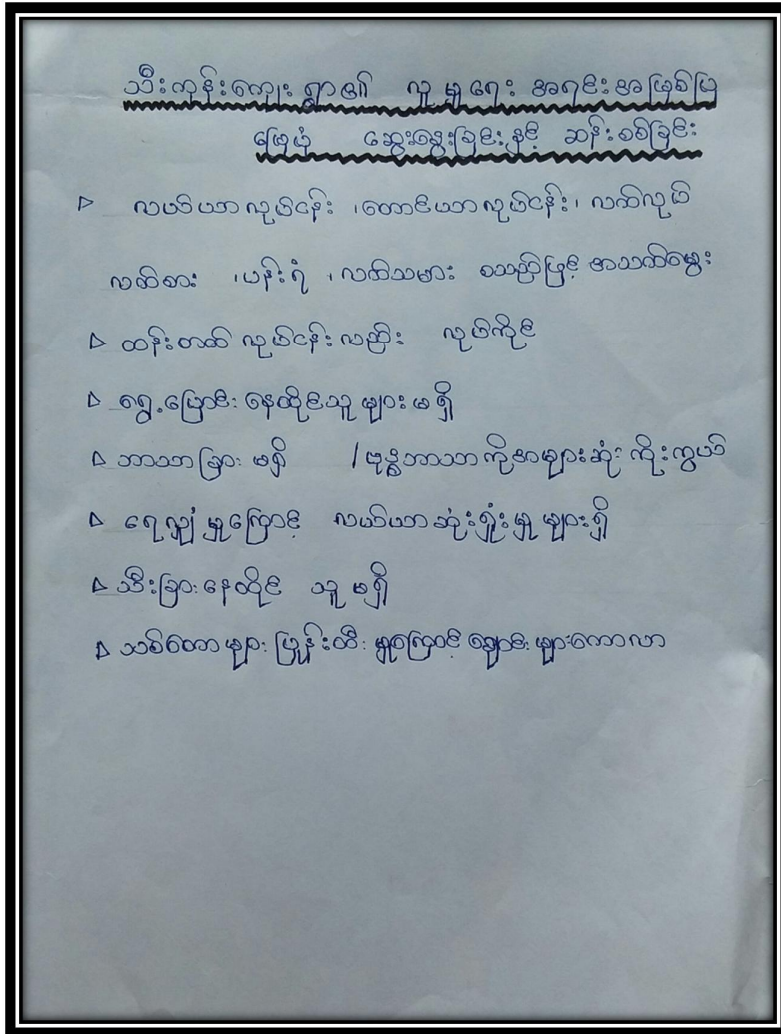 သီးကုန်းကျေးရွာ၏ လူမှုရေး အရင်းအမြစ်ပြ
မြေပုံ ဆွေးနွေးခြင်းနှင့် ဆန်းစစ်ခြင်း
▷ လယ်ယာလုပ်ငန်း ၊တောင်ယာလုပ်ငန်း၊ လက်လုပ်
လက်စား ၊ပန်းရံ ၊လက်သမား စသည်ဖြင့် အသက်မွေး
▷ ထန်းတက် လုပ်ငန်းလည်း လုပ်ကိုင်
▷ ရွှေ့ပြောင်းနေထိုင်သူများ မရှိ
▷ ဘာသာခြား မရှိ /ဗုဒ္ဓဘာသာကိုအများဆုံး ကိုးကွယ်
▷ ရေလျှံမှုကြောင့် လယ်ယာဆုံးရှုံးမှုများရှိ
▷ သီးခြားနေထိုင် သူမရှိ
▷ သစ်တောများ ပြုန်းတီးမှုကြောင့် ချောင်းများကောလာ